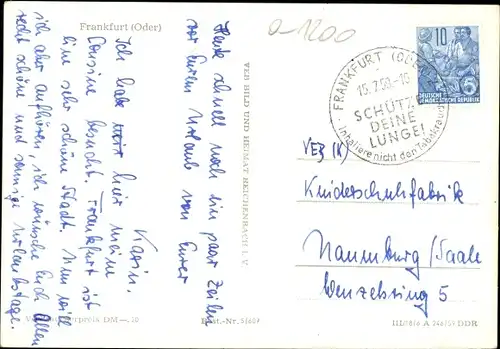 Frankfurt (Oder)
0-1200
Heute schnell noch ein paar Zeilen
vor Eurem Urlaub von Eurer
Karin.
Ich habe hier meine
Cousine besucht. Frankfurt ist
eine sehr schöne Stadt. Nun will
ich aber aufhören, ich wünsche Euch Allen
recht schöne und sonnige Urlaubstage.
VEB BILD UND HEIMAT REICHENBACH I. V.
DM —,10
10
DEUTSCHE
DEMOKRATISCHE REPUBLIK
FRANKFURT (ODER)
SCHÜTZE
DEINE
LUNGE!
Inhaliere nicht den Tabakrauch
VEB (K)
Kinderschuhfabrik
Naumburg/Saale
Wenzelsring 5
DDR